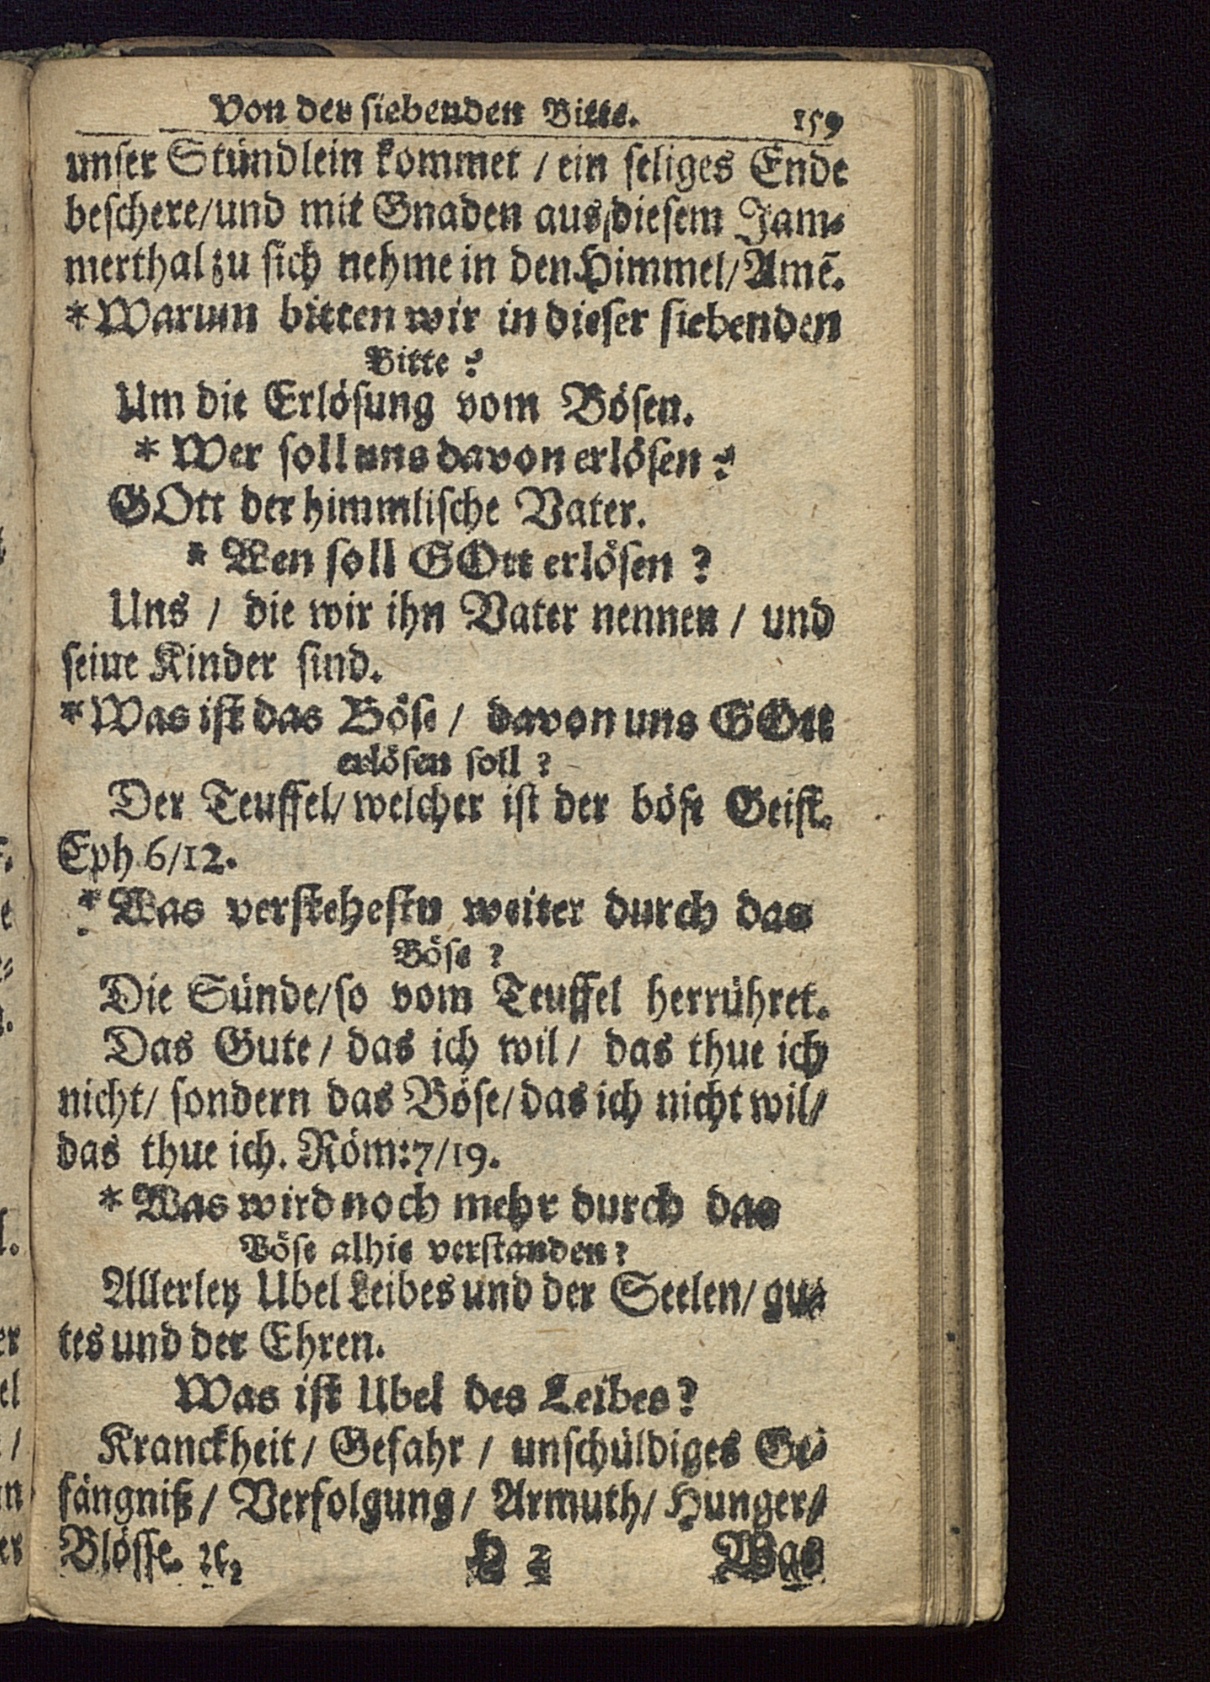 Von der siebenden Bitte. 159
unser Stündlein kommet / ein seliges Ende
beschere/und mit Gnaden aus diesem Jam-
merthal zu sich nehme in den Himmel/Amē.
*Warum bitten wir in dieser siebenden
Bitte?
Um die Erlösung vom Bösen.
* Wer soll uns davon erlösen?
GOtt der himmlische Vater.
* Wen soll GOtt erlösen?
Uns / die wir ihn Vater nennen / und
seine Kinder sind.
*Was ist das Böse / davon uns GOtt
erlösen soll?
Der Teuffel/ welcher ist der böse Geist.
Eph 6/12.
*Was verstehestu weiter durch das
Böse?
Die Sünde/so vom Teuffel herrühret.
Das Gute / das ich wil / das thue ich
nicht/ sondern das Böse/das ich nicht wil/
das thue ich. Röm:7/19.
* Was wird noch mehr durch das
Böse alhie verstanden?
Allerley Ubel Leibes und der Seelen/ gu-
tes und der Ehren.
Was ist Ubel des Leibes?
Kranckheit / Gefahr / unschüldiges Ge-
fängniß / Verfolgung / Armuth/ Hunger/
Blösse. ꝛc. Was